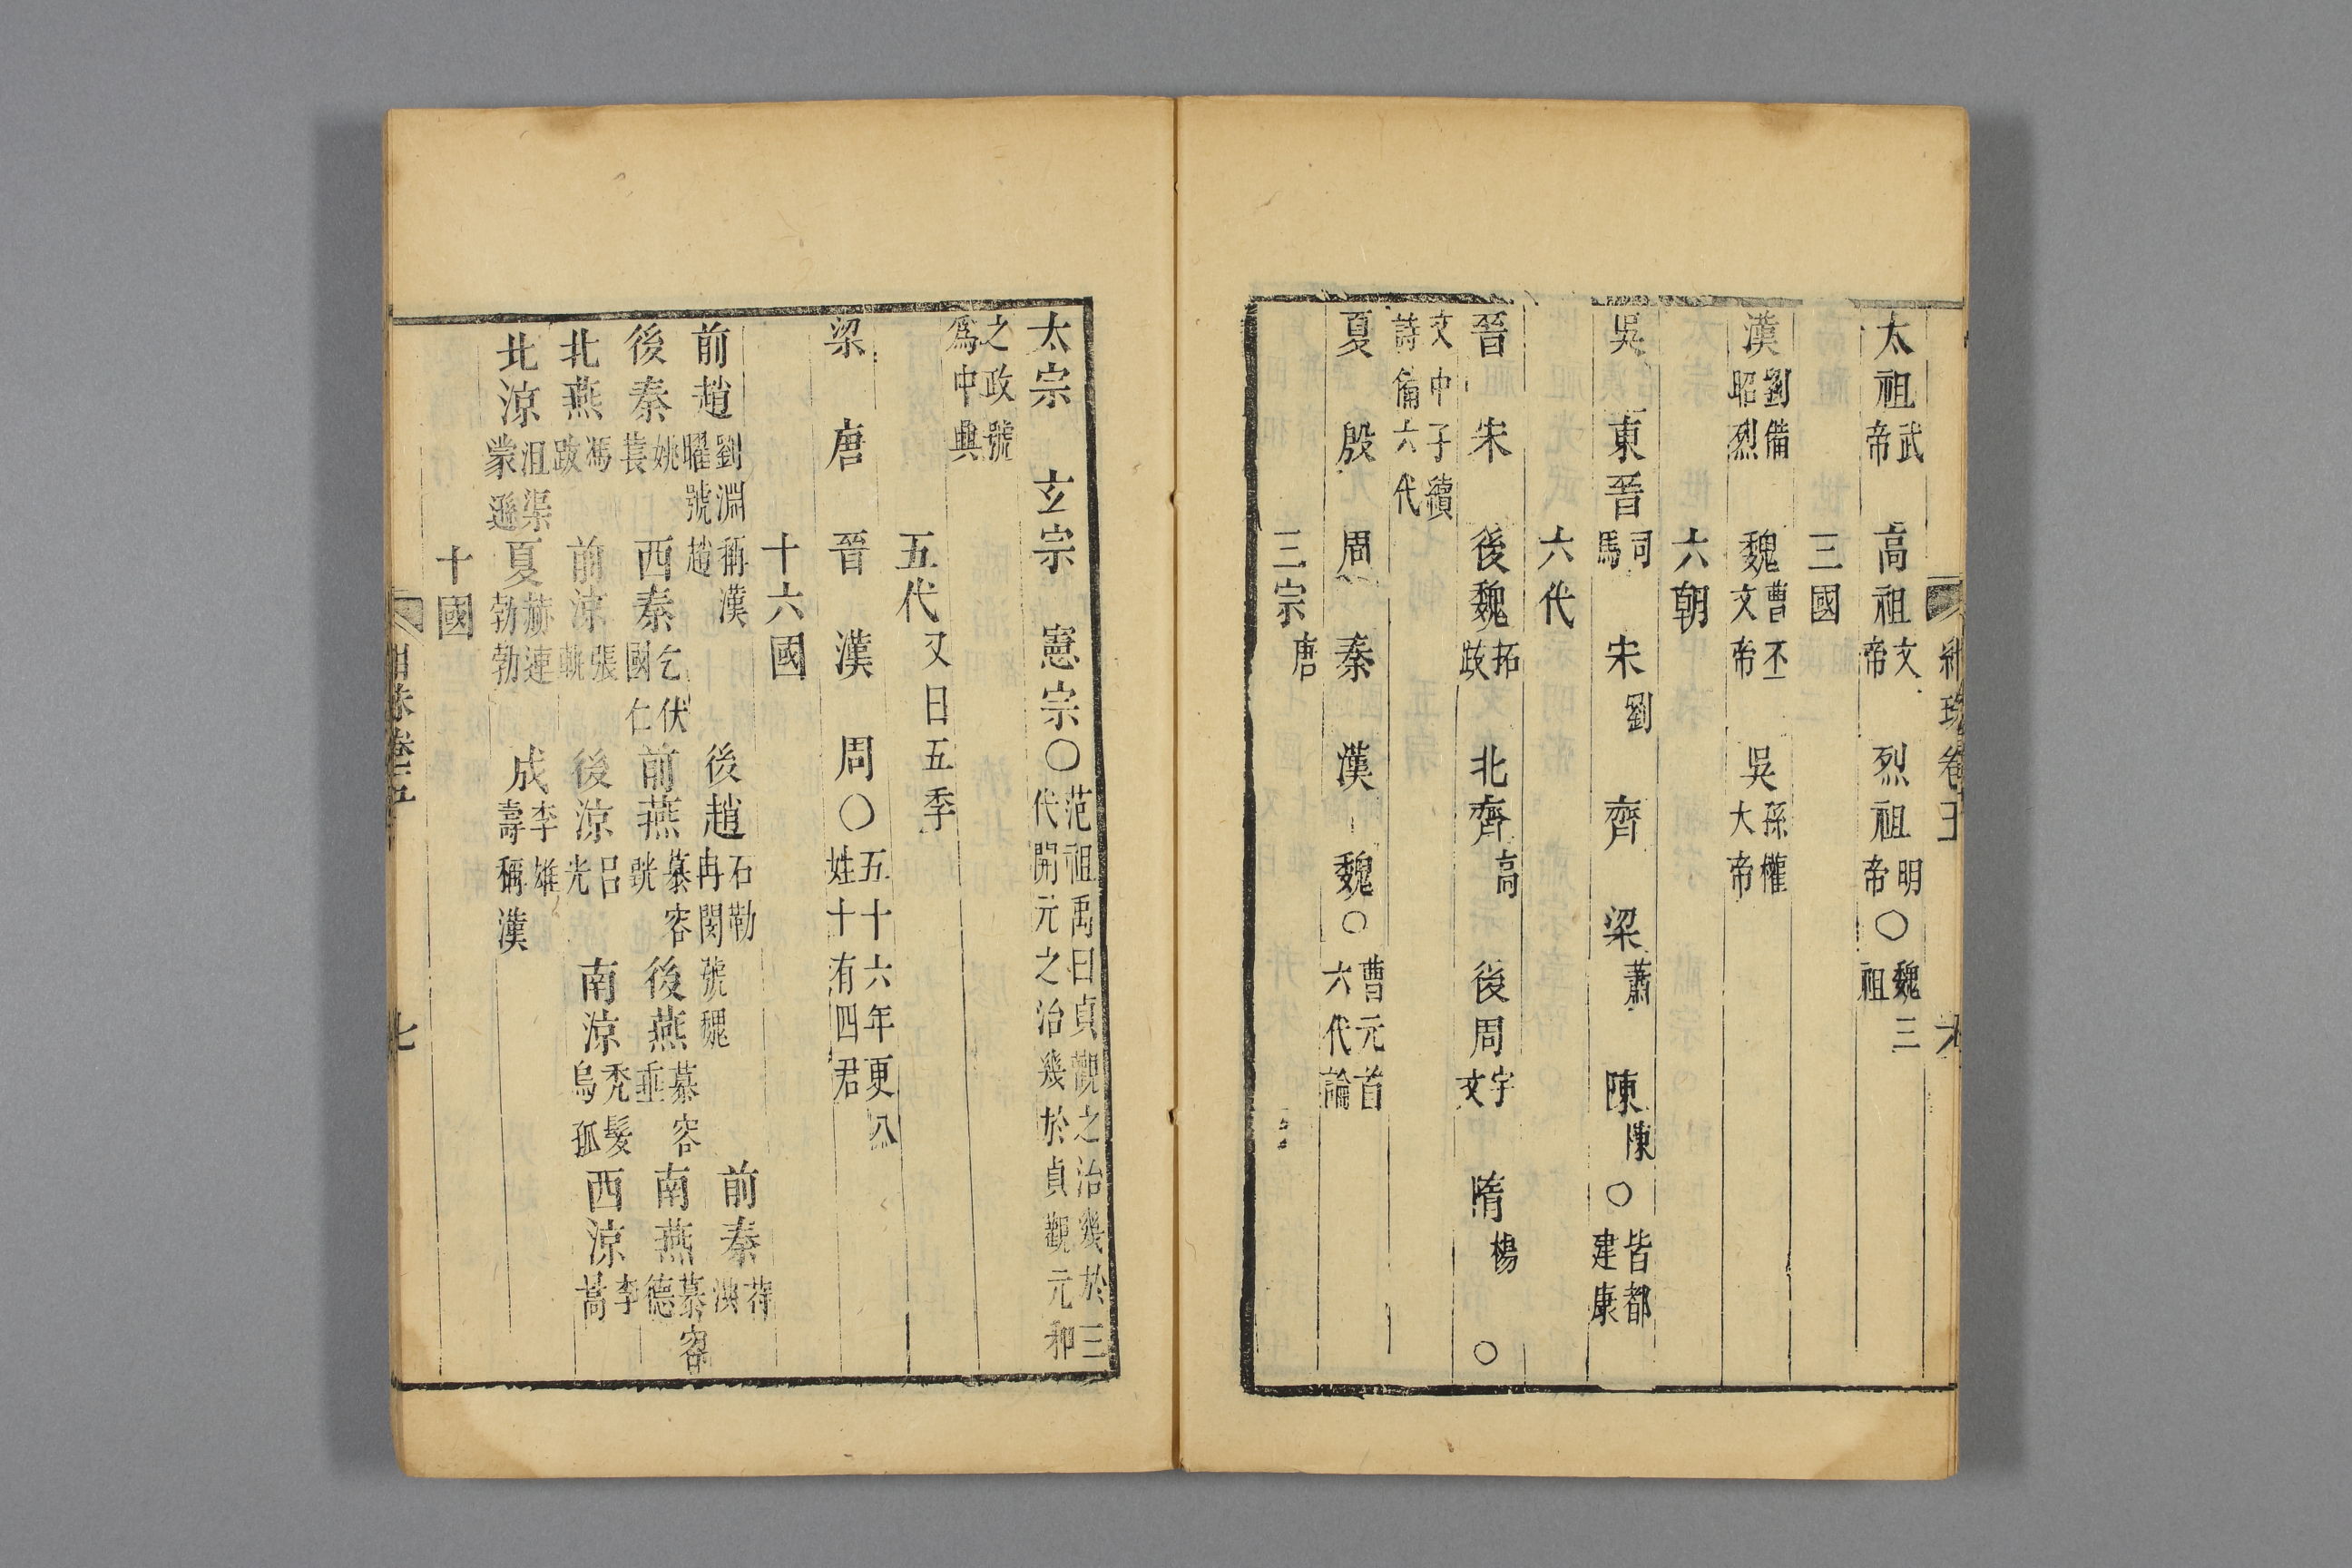 太祖武帝　高祖文帝　烈祖明帝〇魏三祖
三國
漢劉備昭烈　魏曹丕文帝　吳孫權大帝
六朝
吳　東晉司馬　宋劉　齊　梁蕭　陳陳〇皆都建康
六代
晉　宋　後魏拓跋　北齊高　後周宇文　隋楊〇
文中子續詩備六代
夏　殷　周　秦　漢　魏〇曹元首六代論
三宗唐
太宗　玄宗　憲宗〇范祖禹曰貞觀之治幾於三代開元之治幾於貞觀元和
之政號爲中興
五代又曰五季
梁　唐　晉　漢　周〇五十六年更八姓十有四君
十六國
前趙劉淵稱漢曜號趙　後趙石勒冉閔號魏　前秦苻洪
後秦姚萇　西秦乞伏國仁　前燕慕容皝　後燕慕容垂　南燕慕容德
北燕馮跋　前涼張軌　後涼呂光　南涼禿髮烏孤　西涼李暠
北涼沮渠蒙遜　夏赫連勃勃　成李雄壽稱漢
十國
七